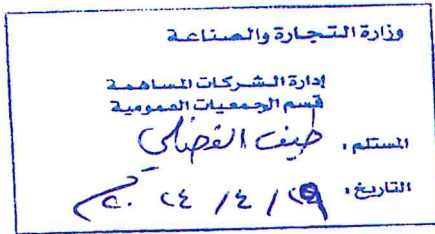 وزارة التجارة والصناعة
إدارة الشركات المساهمة
قسم الجمعيات العمومية
المستلم: طيف الفضلي
التاريخ: / ٤ / ٢٠٢٤